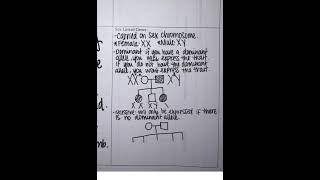 Sex Linked Genes
-Carried on sex chromosome.
*Female: XX *Male: XY
-Dominant: if you have a dominant
allele, you may express the trait.
If you do not have the dominant
allele, you wont express the trait
XX XY
X XY
-recessive: will only be expressed if there
is no dominant allele.
d.
mb.